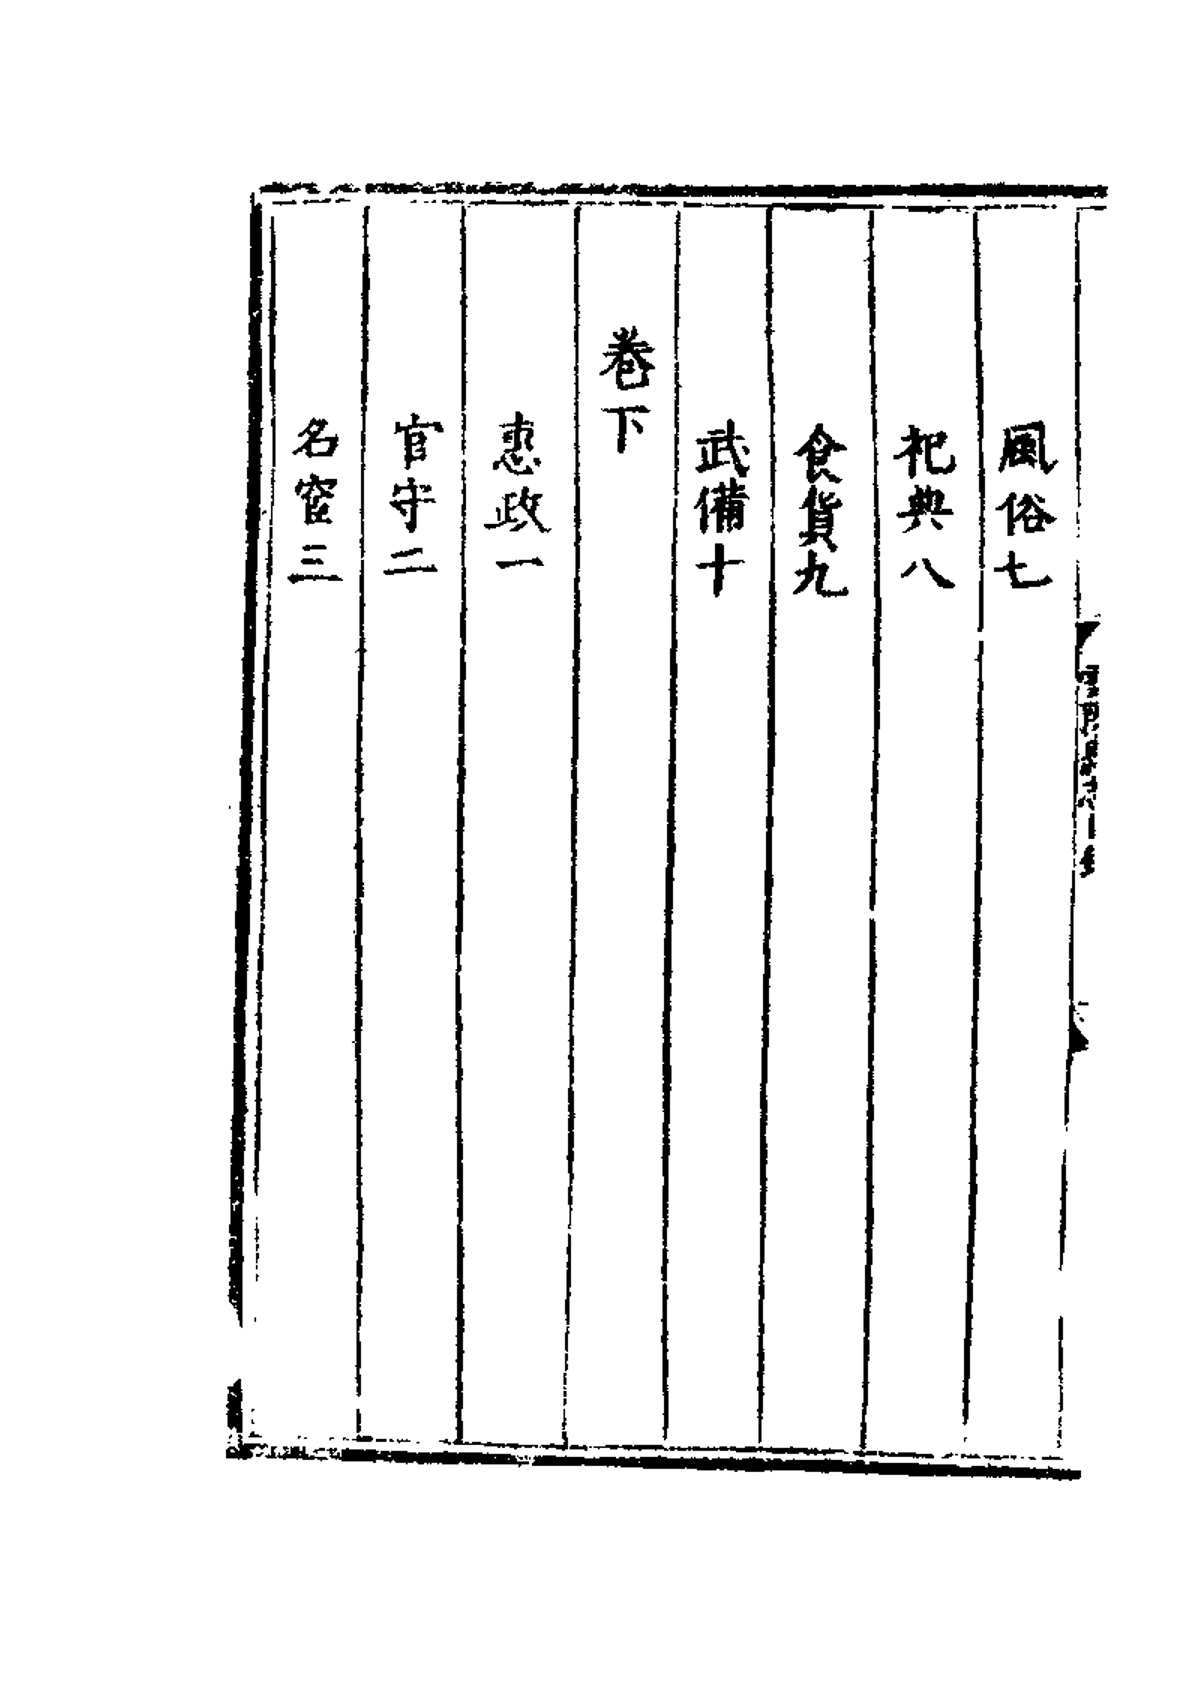 風俗七
祀典八
食貨九
武備十
卷下
惠政一
官守二
名宦三